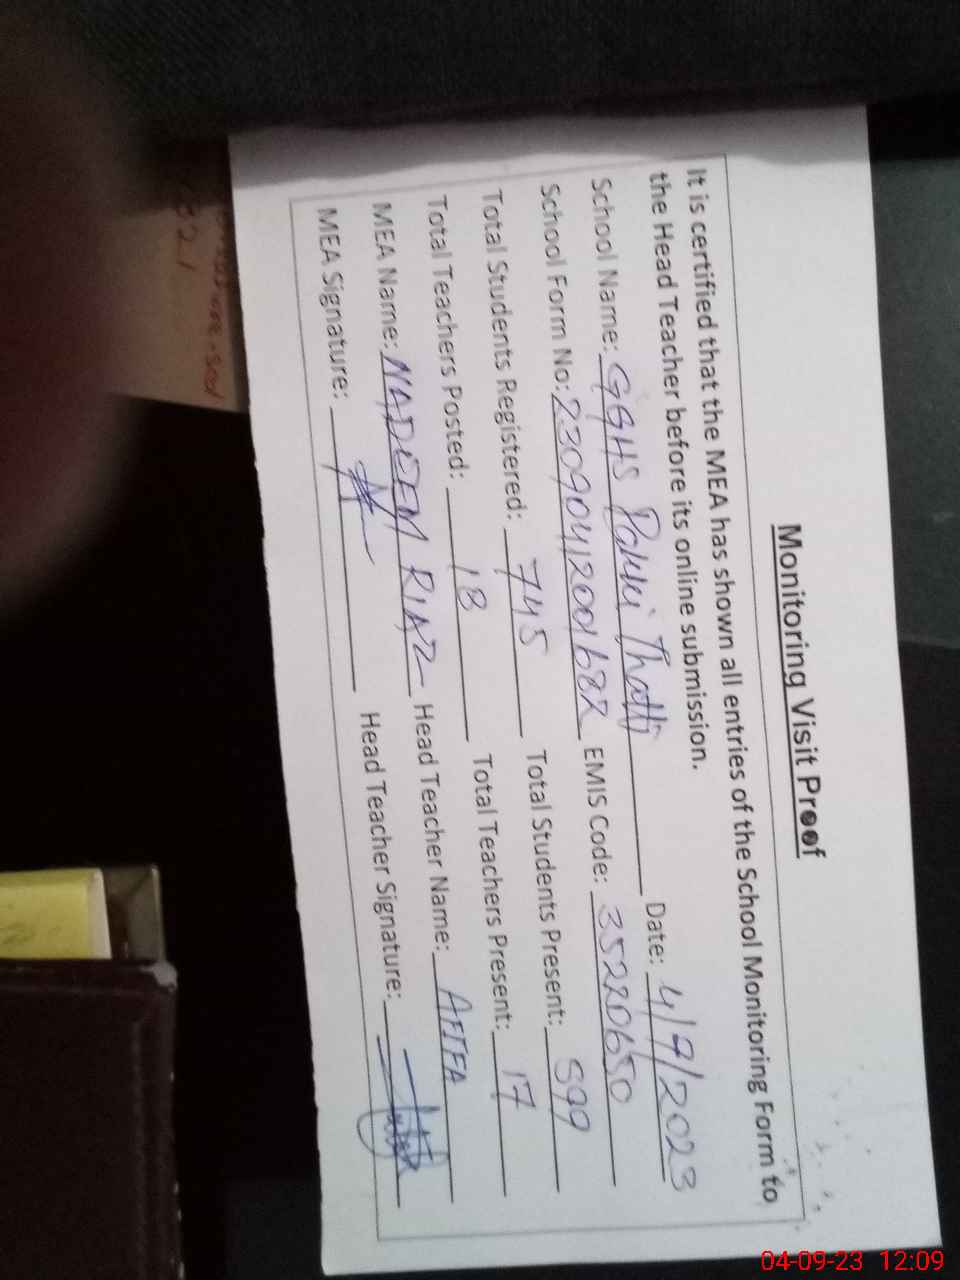 Monitoring Visit Proof
It is certified that the MEA has shown all entries of the School Monitoring Form to
the Head Teacher before its online submission.
School Name: GGHS Pakki Thatti Date: 4/9/2023
School Form No: EMIS Code: 35220650
Total Students Registered: 745 Total Students Present: 599
Total Teachers Posted: 18 Total Teachers Present: 17
MEA Name: NADEEM RIAZ Head Teacher Name: AFIFA
MEA Signature: Head Teacher Signature:
04-09-23 12:09